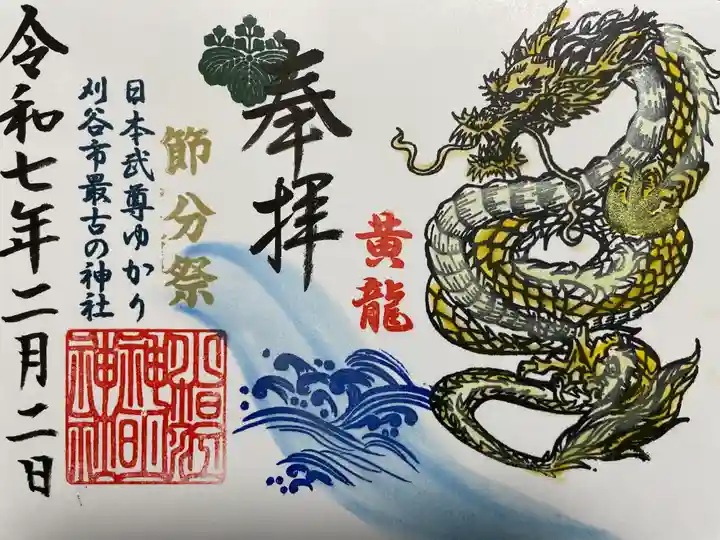 黄龍
奉拝
節分祭
日本武尊ゆかり
刈谷市最古の神社
小垣江
神明
神社
令和七年二月二日